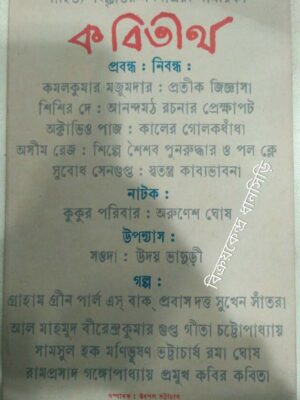 কবিতীর্থ
প্রবন্ধ : নিবন্ধ :
কমলকুমার মজুমদার : প্রতীক জিজ্ঞাসা
শিশির দে : আনন্দমঠ রচনার প্রেক্ষাপট
অক্টাভিও পাজ : কালের গোলকধাঁধা
অসীম রেজ : শিল্পে শৈশব পুনরুদ্ধার ও পল ক্লে
সুবোধ সেনগুপ্ত : স্বতন্ত্র কাব্যভাবনা
নাটক :
কুকুর পরিবার : অরুণেশ ঘোষ
উপন্যাস :
সওদা : উদয় ভাদুড়ী
গল্প :
গ্রাহাম গ্রীন পার্ল এস্ বাক্ প্রবাস দত্ত সুখেন সাঁতরা
আল মাহমুদ বীরেন্দ্রকুমার গুপ্ত গীতা চট্টোপাধ্যায়
সামসুল হক মণিভূষণ ভট্টাচার্য রমা ঘোষ
রামপ্রসাদ গঙ্গোপাধ্যায় প্রমুখ কবির কবিতা
সম্পাদক : উৎপল ভট্টাচার্য
বিক্রয়কেন্দ্র ধানসিড়ি